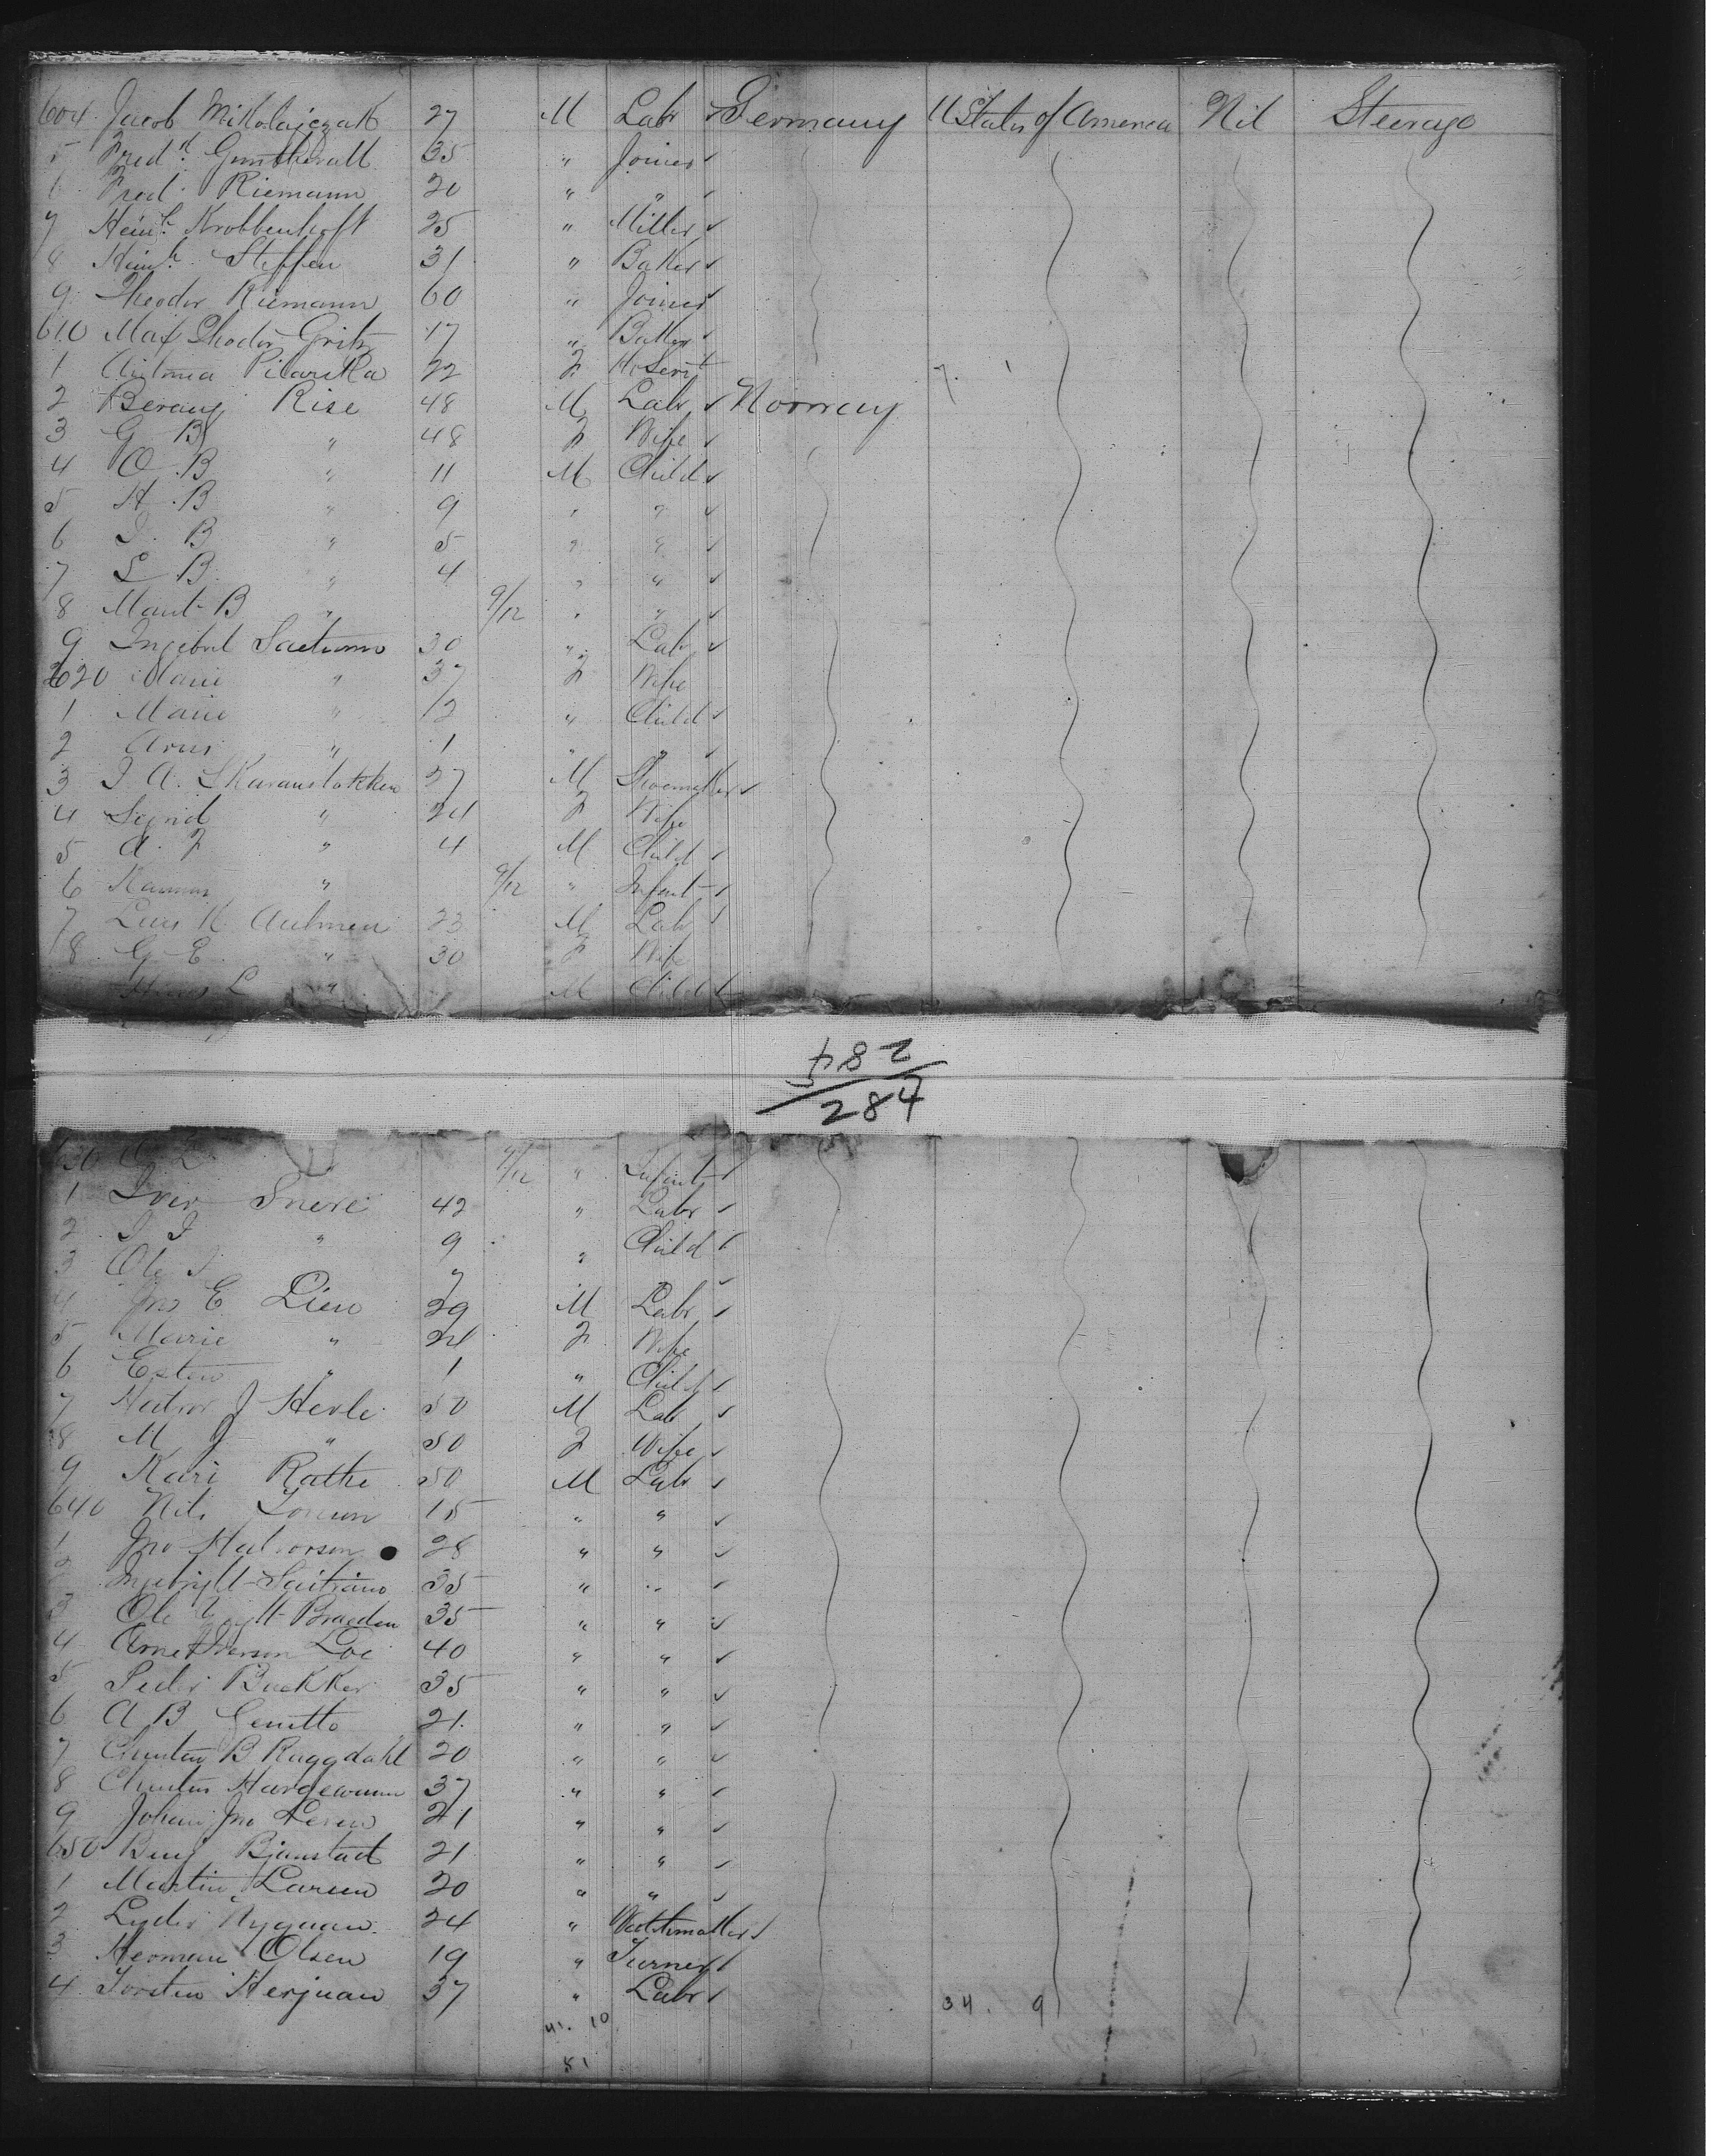 604 Jacob Mikolajczak 27 M Labr Germany U States of America Nil Steerage
5 Fredk 35 " Joiner
6 Fred Riemann 20 " "
7 Heinh Krobbenhoft 25 " Miller
8 Heinh Steffen 31 " Baker
9 Theodor Riemann 60 " Joiner
610 Max Theodor Gritz 17 " Baker
1 Antonia Pilarska 22 F H Servt
2 Berauf Rise 48 M Labr Norway
3 G B " 48 F Wife
4 O B " 11 M Child
5 H B " 9 " "
6 I B " 5 " "
7 L B " 4 " "
8 Marit B " 9/12 " "
9 Ingebrt Saetumo 30 " Labr
620 Marie " 37 F Wife
1 Marie " 12 " Child
2 " 1 " "
3 I A 27 M Shoemaker
4 Sigrid " 24 F Wife
5 A F " 4 M Child
6 " 9/12 " Infant
7 Lars K 23 M Labr
8 G E " 30 F Wife
L " M Child
582
284
630 O L 9/12 " Infant
1 Iver Snere 42 " Labr
2 I I " 9 " Child
3 Ole I 7 "
4 Jno E Lien 29 M Labr
5 Marie " 24 F Wife
6 Esten " 1 " Child
7 J Herle 50 M Labr
8 M J " 50 F Wife
9 Kari Rathe 50 M Labr
640 Nils 15 " "
1 Jno Halvorson 28 " "
2 Ingebrigt 35 " "
3 Ole Braeden 35 " "
4 Arne Iverson Loe 40 " "
5 Peder Bakker 35 " "
6 A B 21 " "
7 B Ruggdahl 20 " "
8 37 " "
9 Johan Jno 21 " "
650 Bjornstad 21 " "
1 Martin Larsen 20 " "
2 Nygaan 24 " Watchmaker
3 Herman Olsen 19 " Turner
4 Torsten Herjuan 37 " Labr
34. 9
41. 10
51